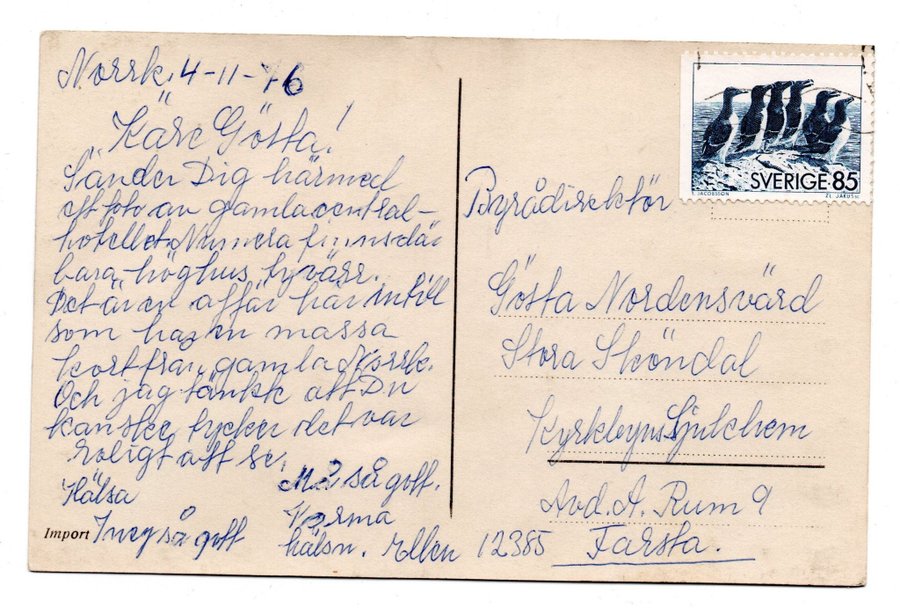 Norrk. 4-11-76
Käre Gösta!
Sänder Dig härmed
ett foto av gamla central-
hotellet. Numera finns där
bara höghus, tyvärr.
Det är en affär här intill
som har en massa
kort från gamla Norrk.
Och jag tänkte att Du
kanske tycker det var
roligt att se.
Hälsa
Må så gott.
Ingy så gott
Varma
hälsn. Ellen
Import
SVERIGE 85
JACOBSSON
Byrådirektör
Gösta Nordensvärd
Stora Sköndal
Kyrkbyns Sjukhem
Avd. A. Rum 9
12385 Farsta.